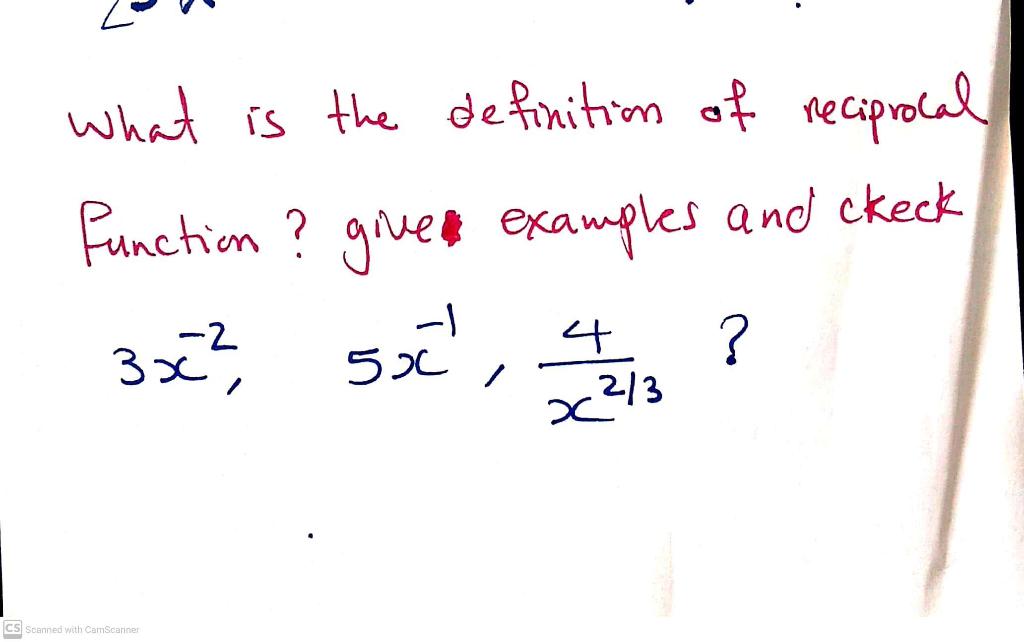 What is the definition of reciprocal
function? give examples and ckeck
3x⁻², 5x⁻¹, 4/x^2/3 ?
CS Scanned with CamScanner